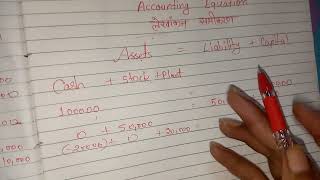 Accounting Equation
लेखांकन समीकरण
Assets = Liability + Capital
Cash + Stock + Plant
100000 = 50,
0 + 50,000
(-20000) + 0 + 20,000
10,000